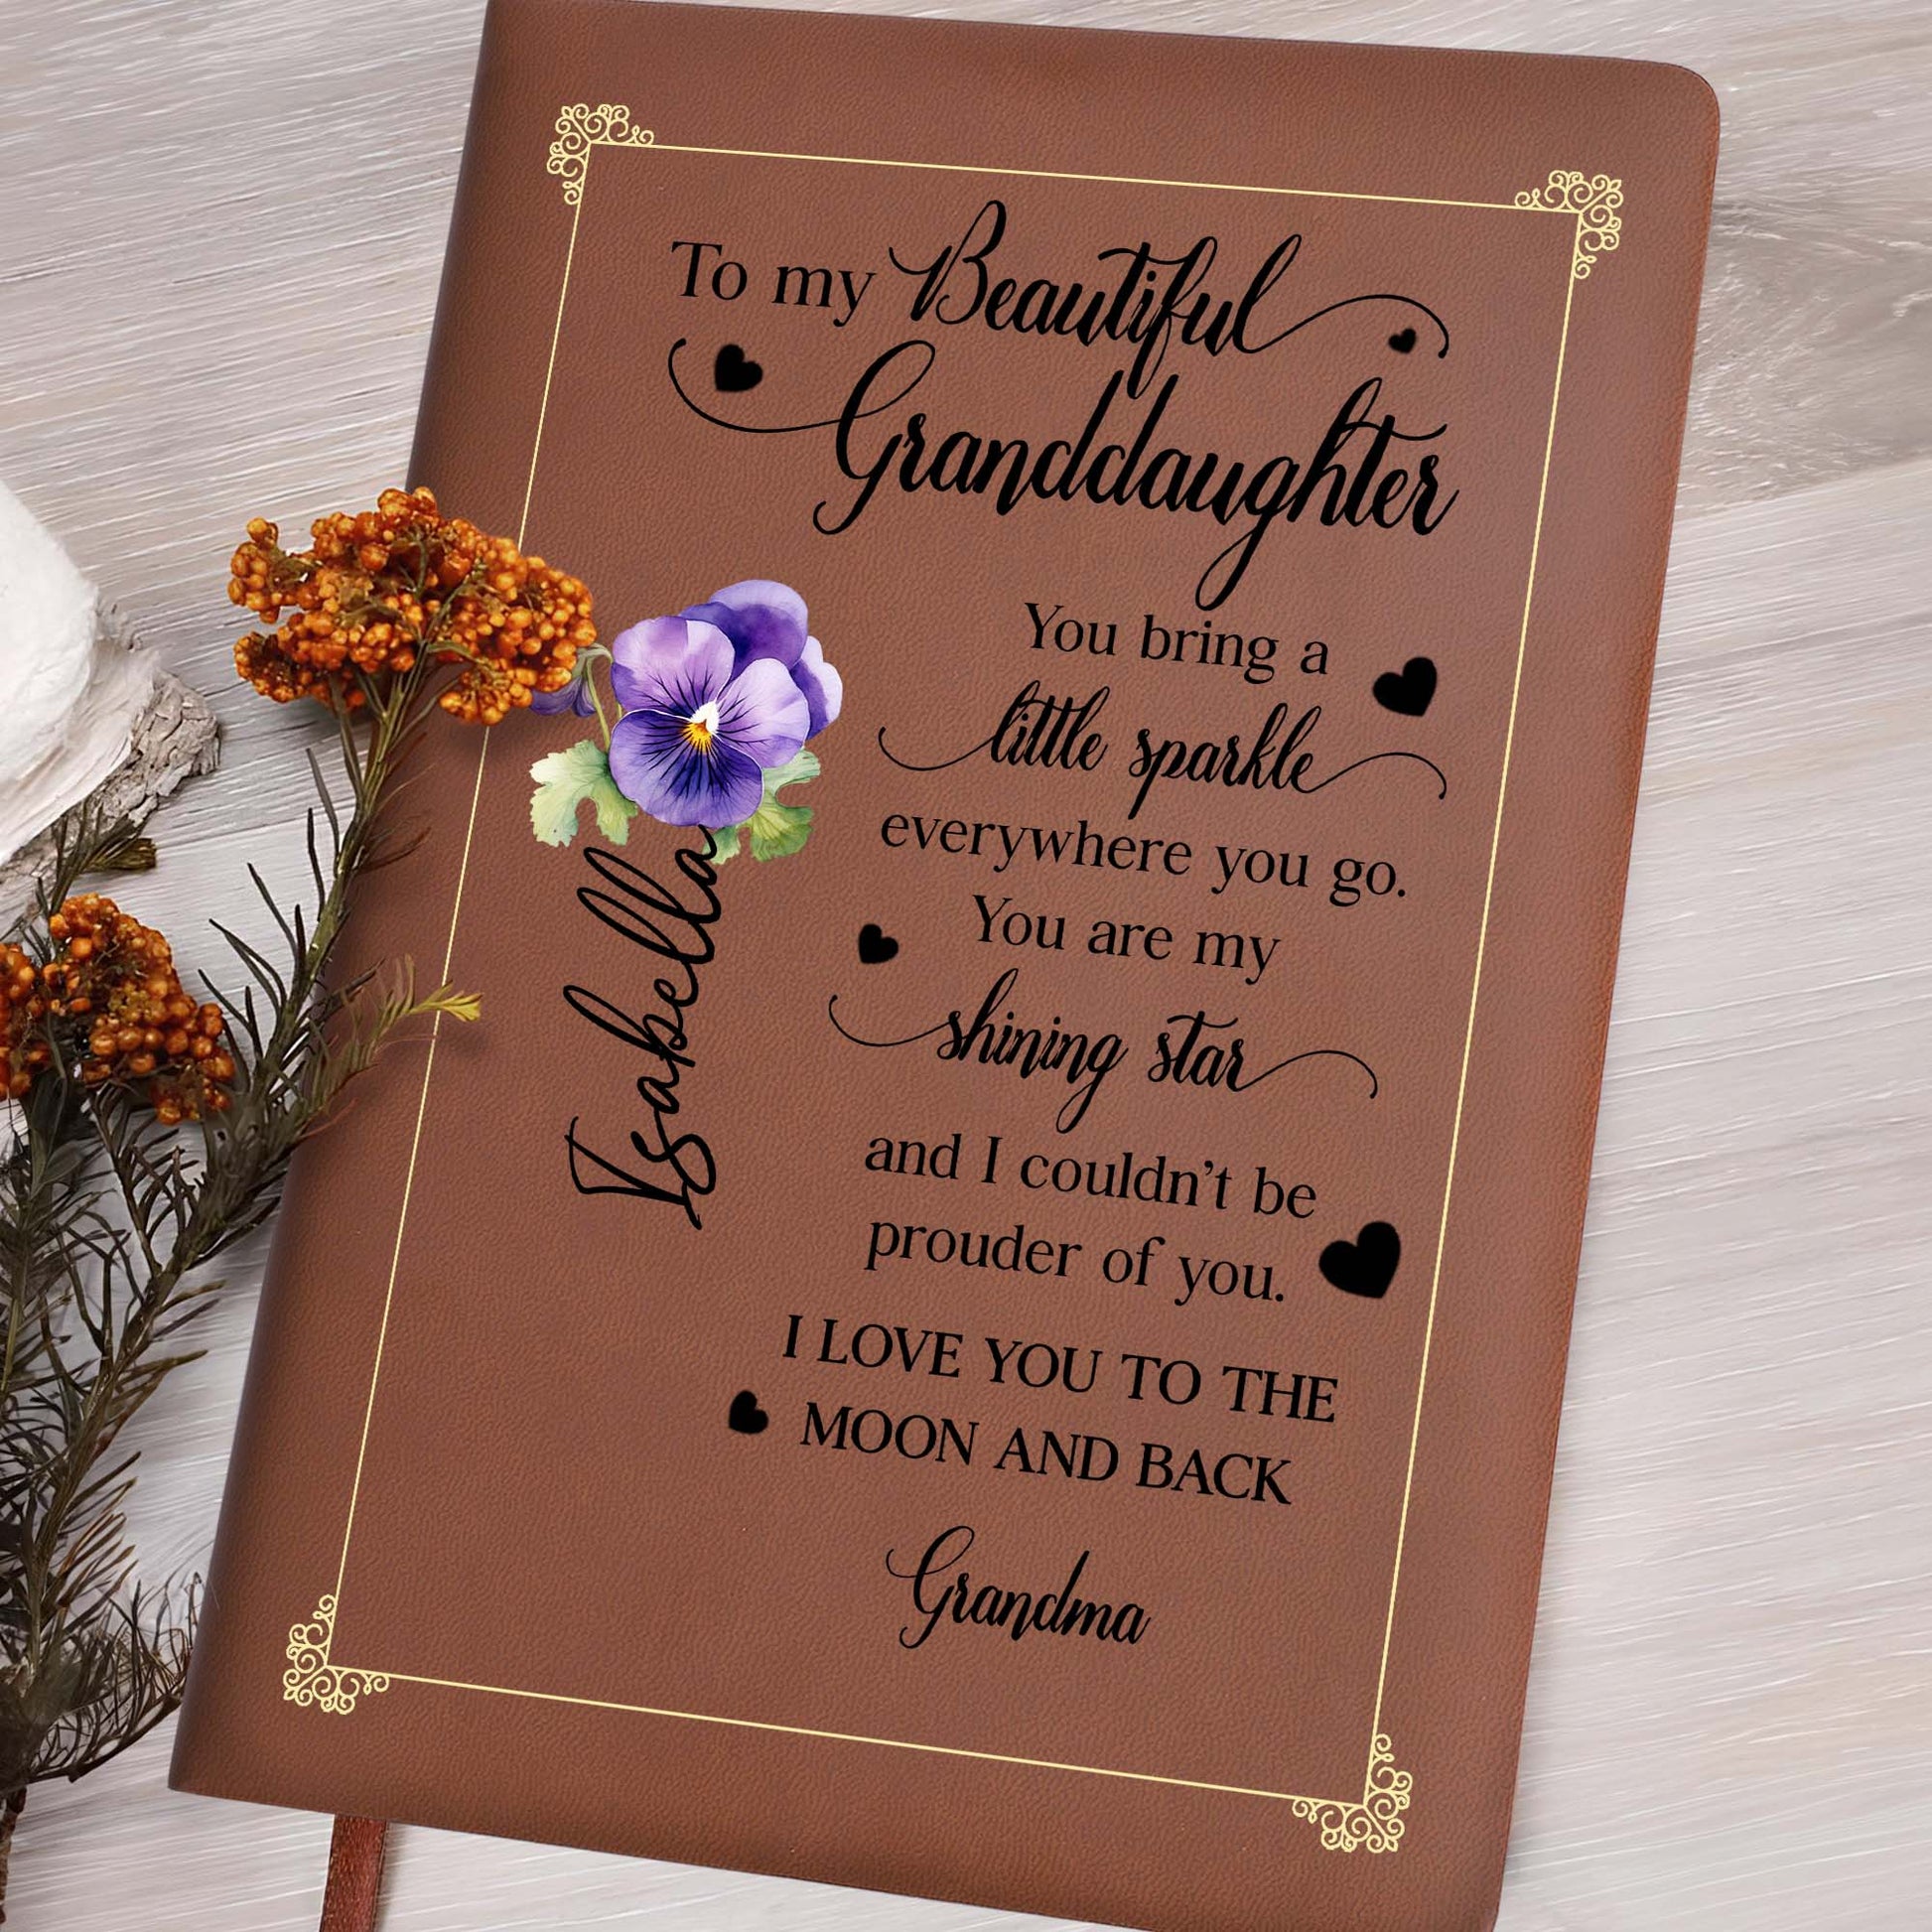 To my Beautiful
Granddaughter
You bring a
little sparkle
everywhere you go.
You are my
shining star
and I couldn't be
prouder of you.
I LOVE YOU TO THE
MOON AND BACK
Grandma
Isabella